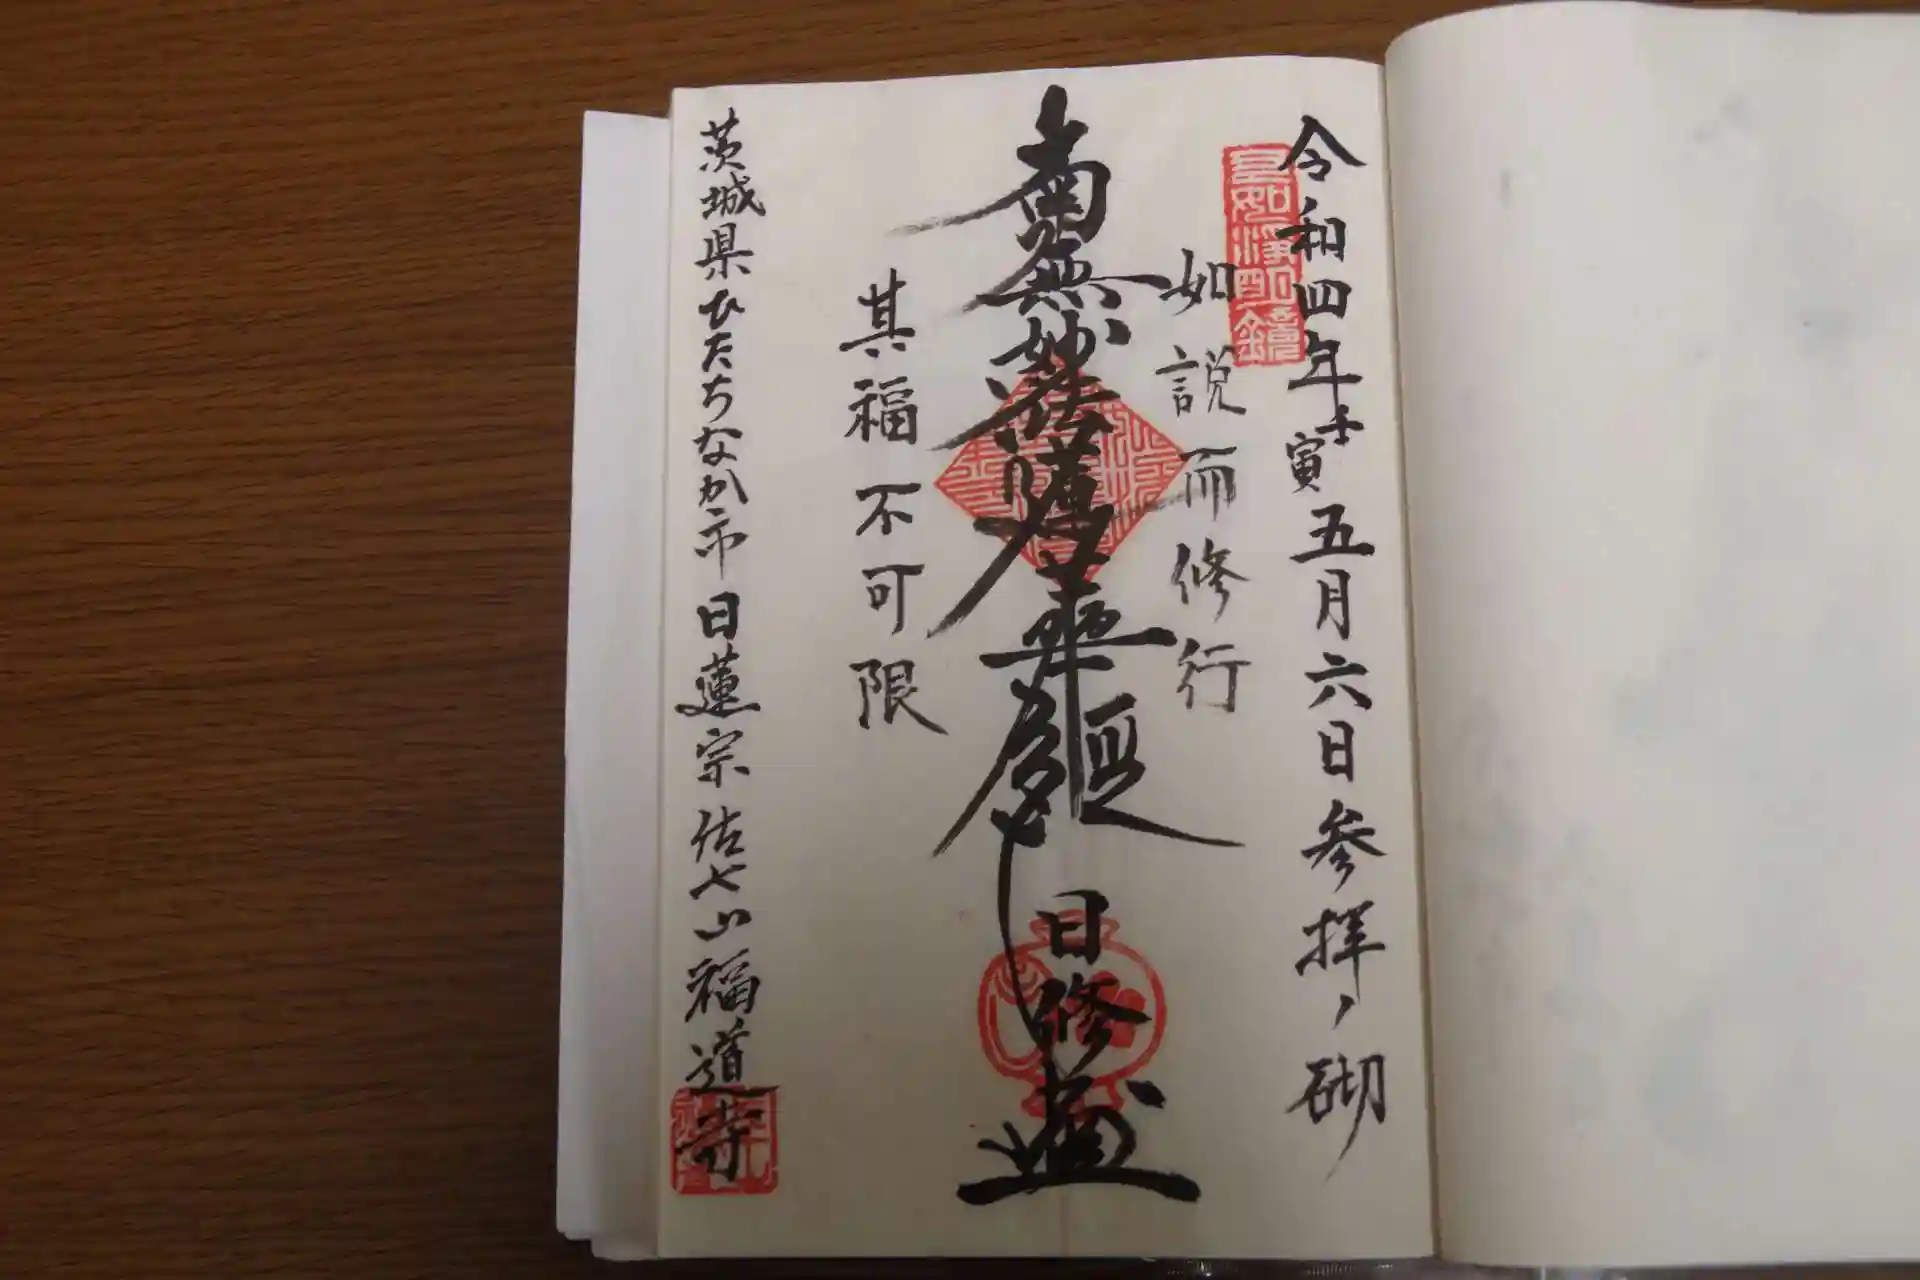 令和四年壬寅五月六日参拝ノ砌
如説而修行
南無妙法蓮華経
日修
其福不可限
茨城県ひたちなか市 日蓮宗 佐七山 福道寺
又如淨明鏡